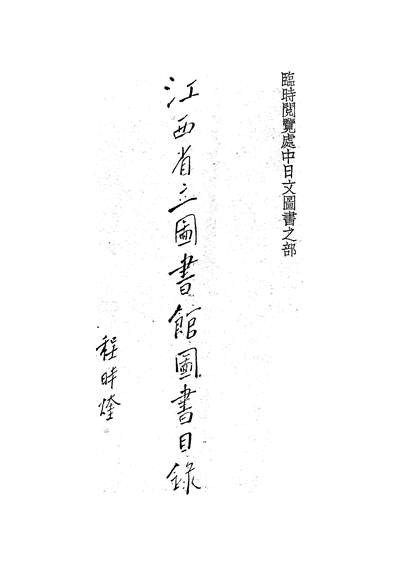 臨時閱覽處中日文圖書之部
江西省立圖書館圖書目錄
程時煃